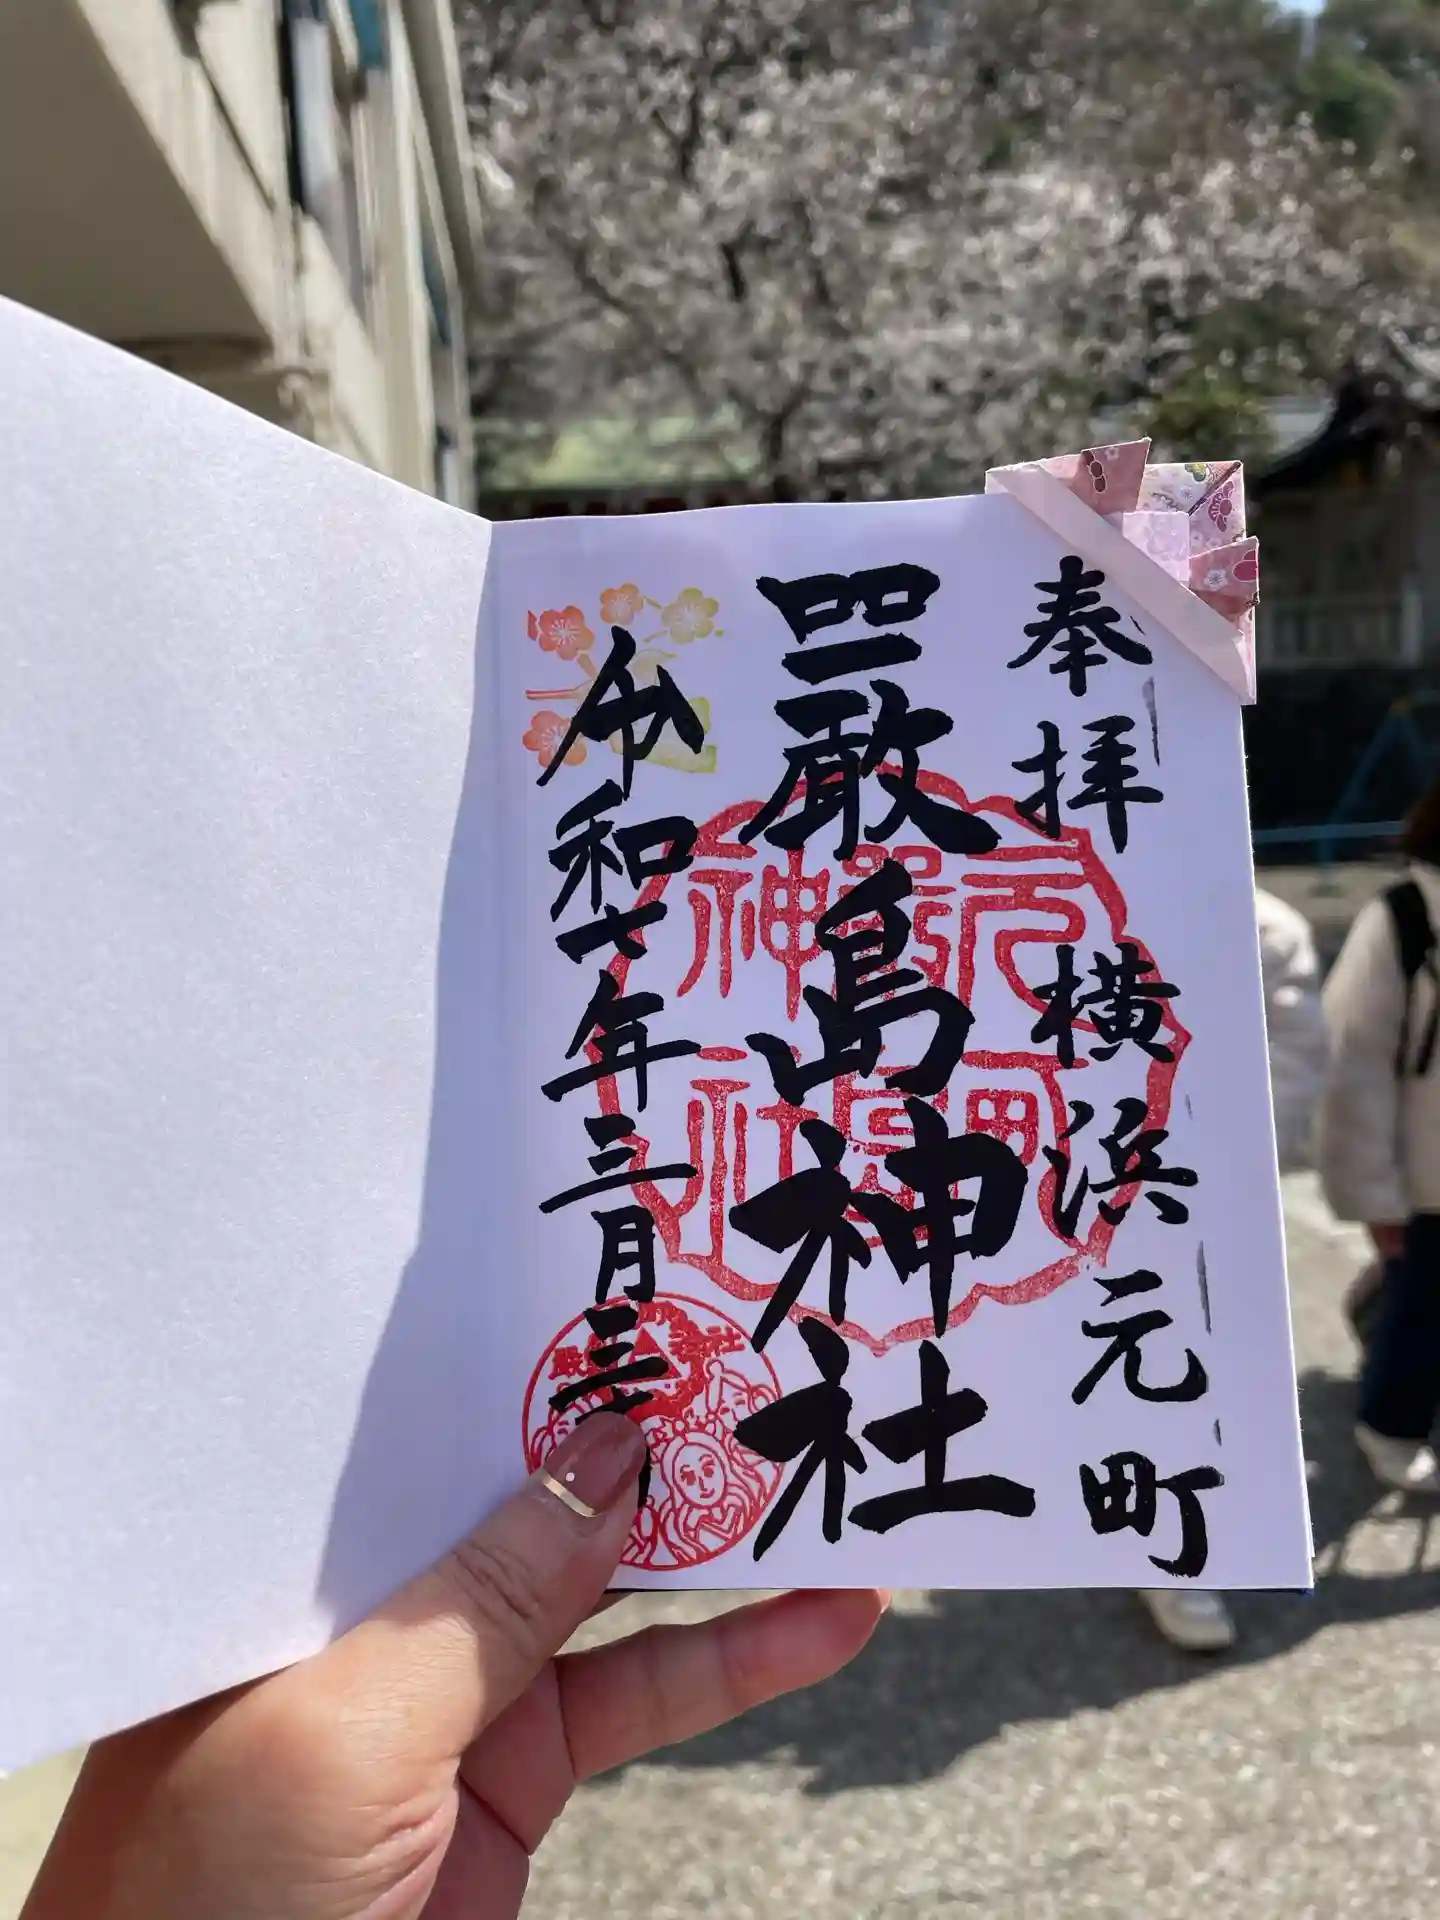 奉拝 横浜元町
嚴島神社
令和七年三月三
元町
嚴島
神社
嚴島神社